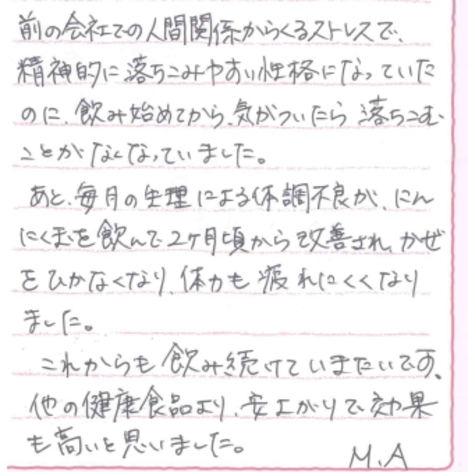 前の会社での人間関係からくるストレスで、
精神的に落ちこみやすい性格になっていた
のに、飲み始めてから、気がついたら落ちこむ
ことがなくなっていました。
あと、毎月の生理による体調不良が、にん
にく玉を飲んで2ケ月頃から改善され、かぜ
をひかなくなり、体力も疲れにくくなり
ました。
これからも飲み続けていきたいです。
他の健康食品より、安上がりで効果
も高いと思いました。
M.A